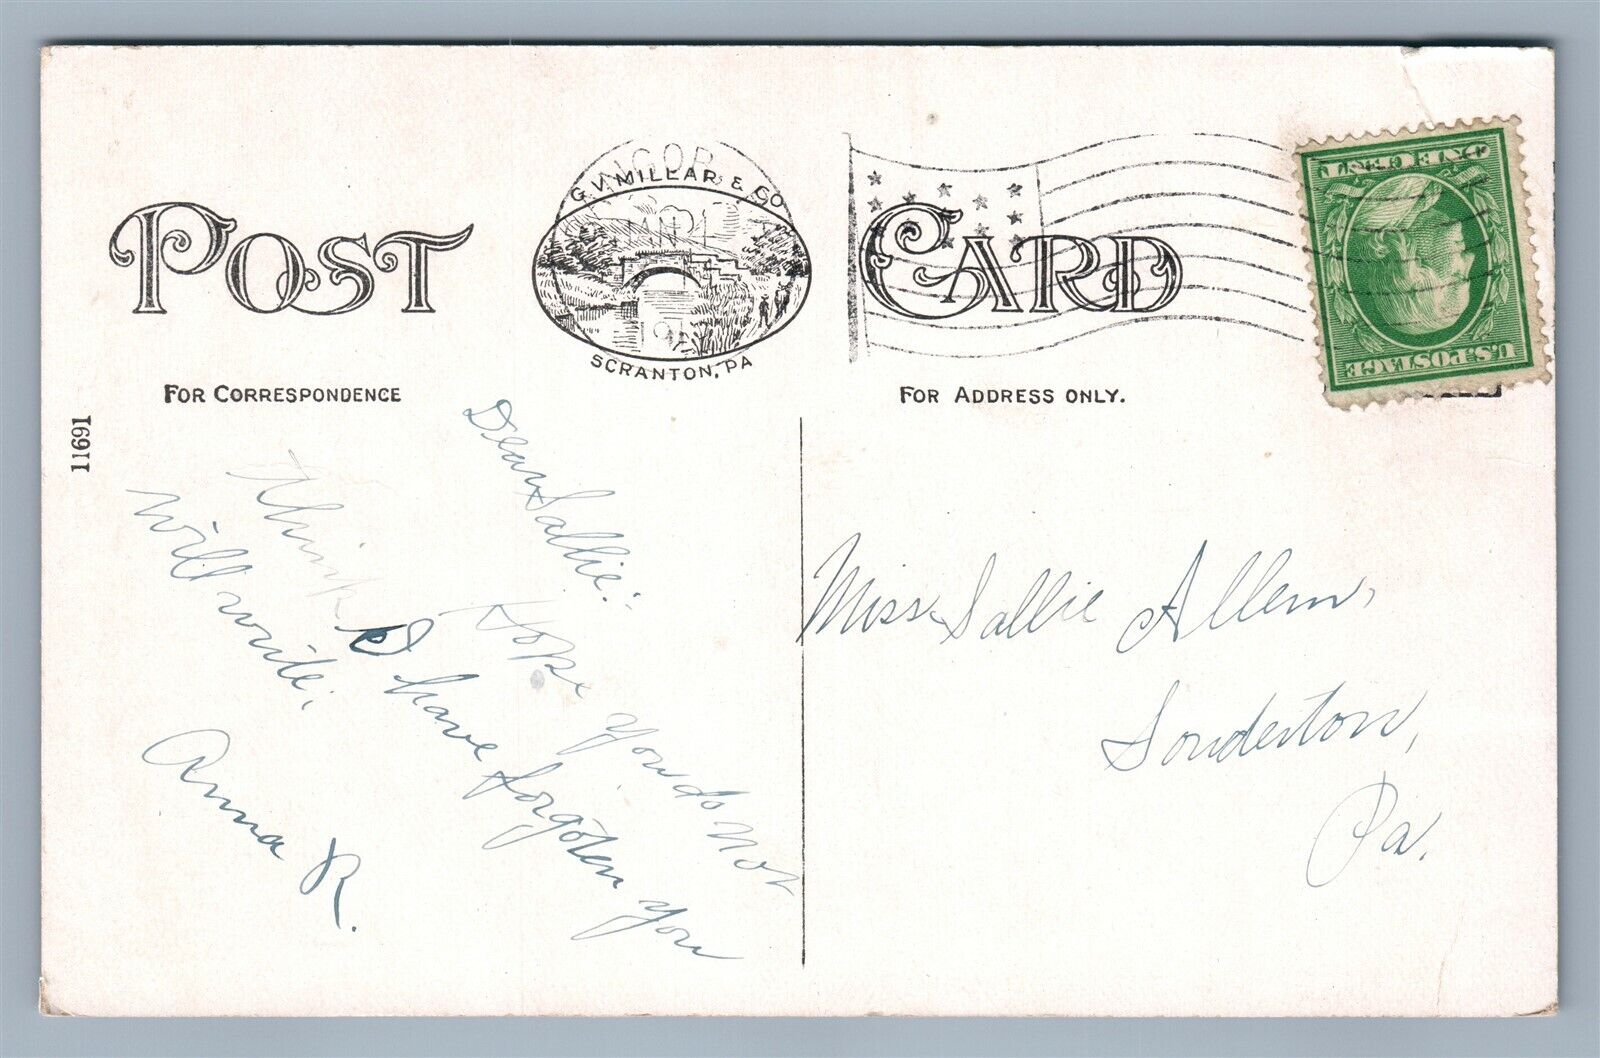 POST CARD
G. V. MILLAR & CO
SCRANTON, PA
FOR CORRESPONDENCE
FOR ADDRESS ONLY.
11691
ONE CENT
U.S. POSTAGE
Dear Sallie:-
Hope you do not
think I have forgoten you
will write.
Anna R.
Miss Sallie Allem,
Souderton,
Pa.